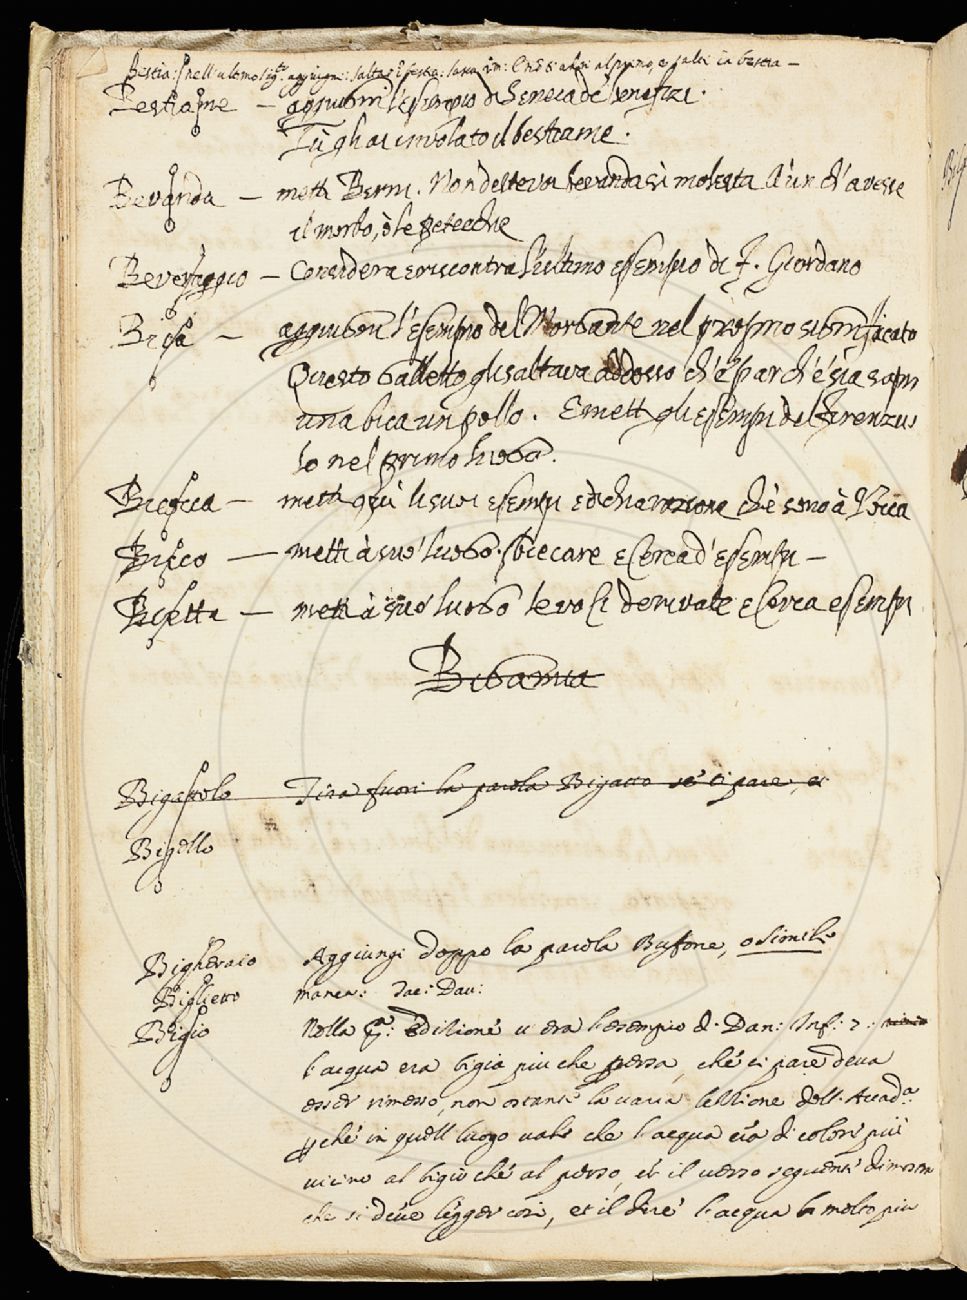 Bestia: nell ultimo aggiugni: saltar
Bestiame — aggiugni l'esempio di Seneca de benefizi.
Tù gli ai involato il bestiame.
Bevanda — metti Bern. Non dette bevanda sì molesta A un ch'avesse
il morbo, ò le petecchie
Beveraggio — Considera e riscontra l'ultimo esempio di F. Giordano
Bica — aggiugni l'esempio del Morgante nel proprio significato
Questo balletto gli saltava addosso ch'e' par ch'e' sia sopra
una bica un pollo. E metti gli esempi del Firenzuo
lo nel primo luogo.
Bicocca — metti quì li suoi esempi e dichiarazione che sono à
Bieco — metti à suo luogo. sbiecare e cerca d'esempi —
Bietta — metti à suo luogo le voci derivate e cerca esempi
Bigamia
Bigattolo Tira fuori la parola Bigatto se ti pare, et
Bigello
Bigheraio Aggiungi doppo la parola Buffone, o simile
Biglietto manca: Tac: Dav:
Bigio Nella Pa: Edizione v'era l'esempio di Dan: Inf: 7.
l'acqua era bigia più che persa, che ci pare deva
esser rimesso, non ostante la varia lettione dell: Accada
pche in quell luogo vale che l'acqua era di colore più
vicino al bigio che al perso, et il verso seguente dimostra
che si deve legger così, et il dire l'acqua molto più